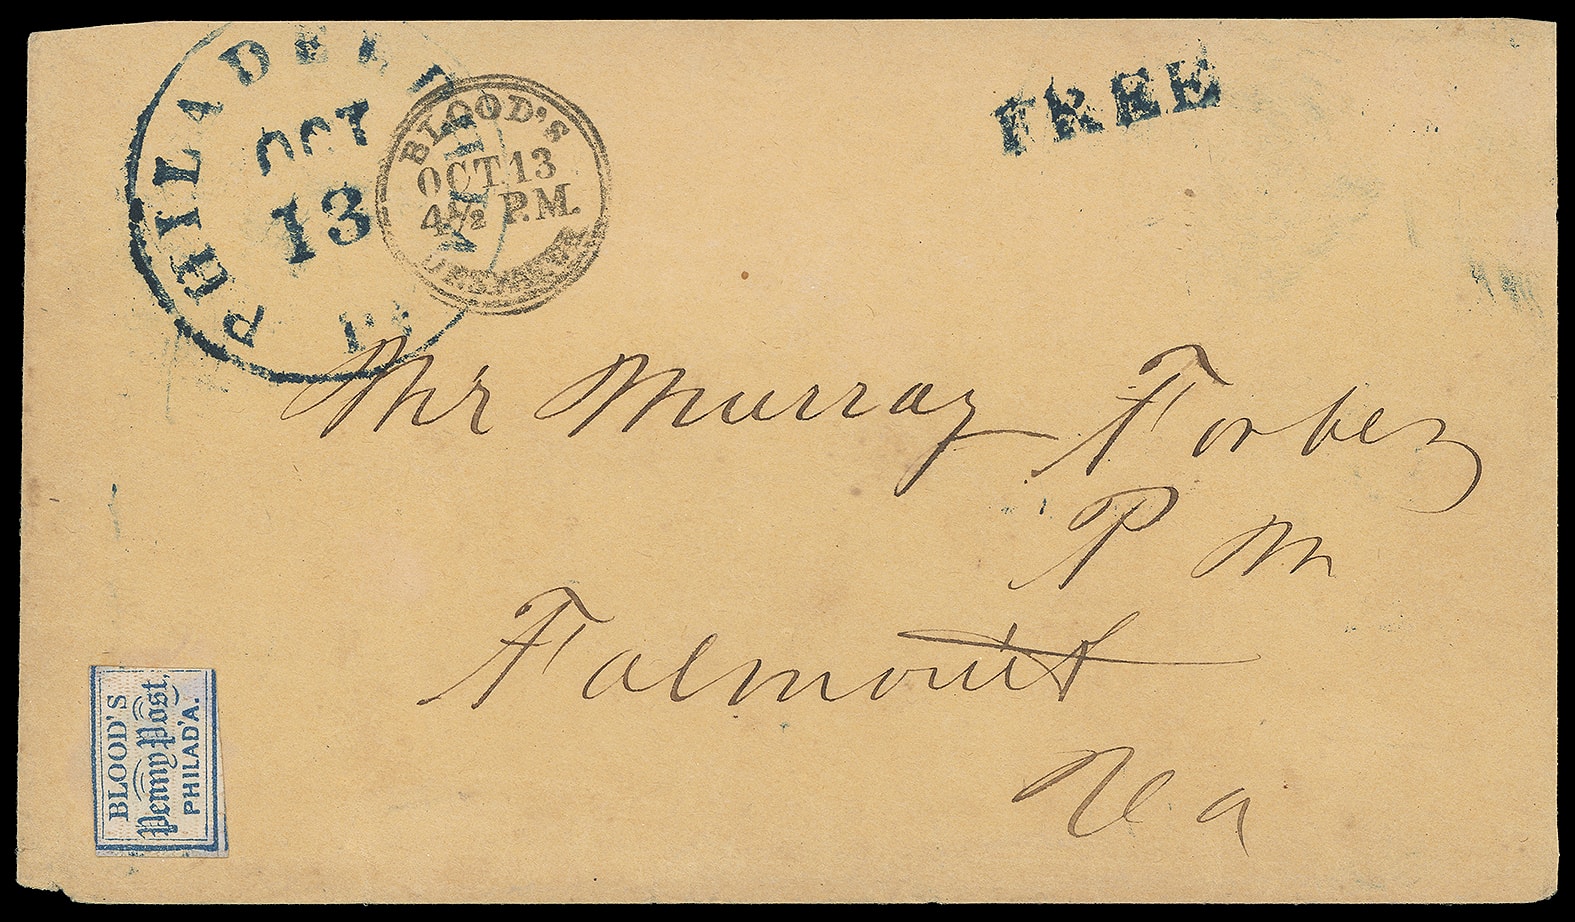 PHILADELPHIA
OCT
13
Pa
BLOOD'S
OCT 13
4½ P.M.
DESPATCH
FREE
Mr Murray Forbes
P M
Falmouth
Va
BLOOD'S
Penny Post,
PHILAD'A.